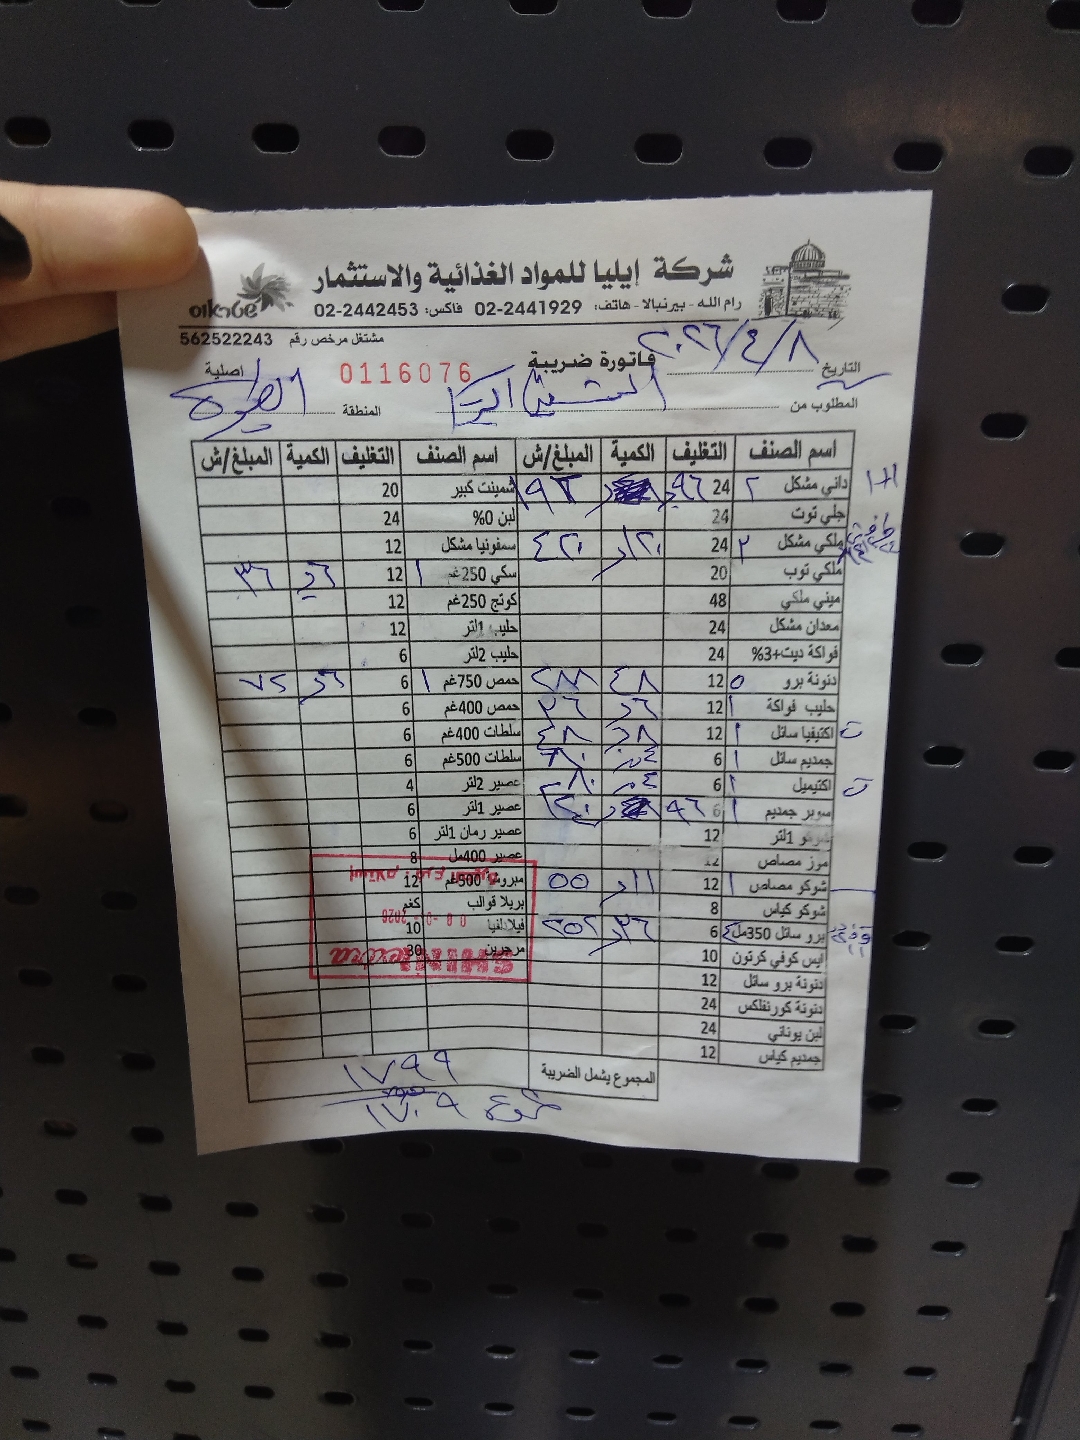 شركة إيليا للمواد الغذائية والاستثمار
رام الله - بيرنبالا - هاتف: 02-2441929 فاكس: 02-2442453
مشتغل مرخص رقم 562522243
فاتورة ضريبة
التاريخ ٢٠٢٦/٤/٨
اصلية
0116076
المطلوب من
المنطقة الطيرة
اسم الصنف التغليف الكمية المبلغ/ش اسم الصنف التغليف الكمية المبلغ/ش
داني مشكل ٢ 24 ٩٦ ١٩٢ شمينت كبير 20
١+١
جلي توت 24 لبن 0% 24
ملكي مشكل ٢ 24 ٤٢٠ سمفونيا مشكل 12
ملكي توب 20 سكي 250غم ١ 12 ٣٦
ميني ملكي 48 كوتج 250غم 12
معدان مشكل 24 حليب 1لتر 12
فواكة ديت+3% 24 حليب 2لتر 6
دنونة برو ٥ 12 ٤٨ ٢٨٨ حمص 750غم ١ 6 ٧٢
حليب فواكة ١ 12 ٣٦ حمص 400غم 6
اكتيفيا سائل ١ 12 ٤٨ سلطات 400غم 6
جمديم سائل ١ 6 سلطات 500غم 6
اكتيميل ١ 6 عصير 2لتر 4
سوبر جمديم ١ 6 عصير 1لتر 6
1لتر 12 عصير رمان 1لتر 6
مرز مصاص 12 عصير 400مل 8
شوكو مصاص ١ 12 ٥٥ 500غم 12
شوكو كياس 8 بريلا قوالب كغم
برو سائل 350مل ٤ 6 ٣٦ ٢٥٢ فيلادلفيا 10
ايس كوفي كرتون 10 مرجرين 30
دنونة برو سائل 12
دنونة كورنفلكس 24
لبن يوناني 24
جمديم كياس 12
المجموع يشمل الضريبة ١٧٩٩
١٧٠٩